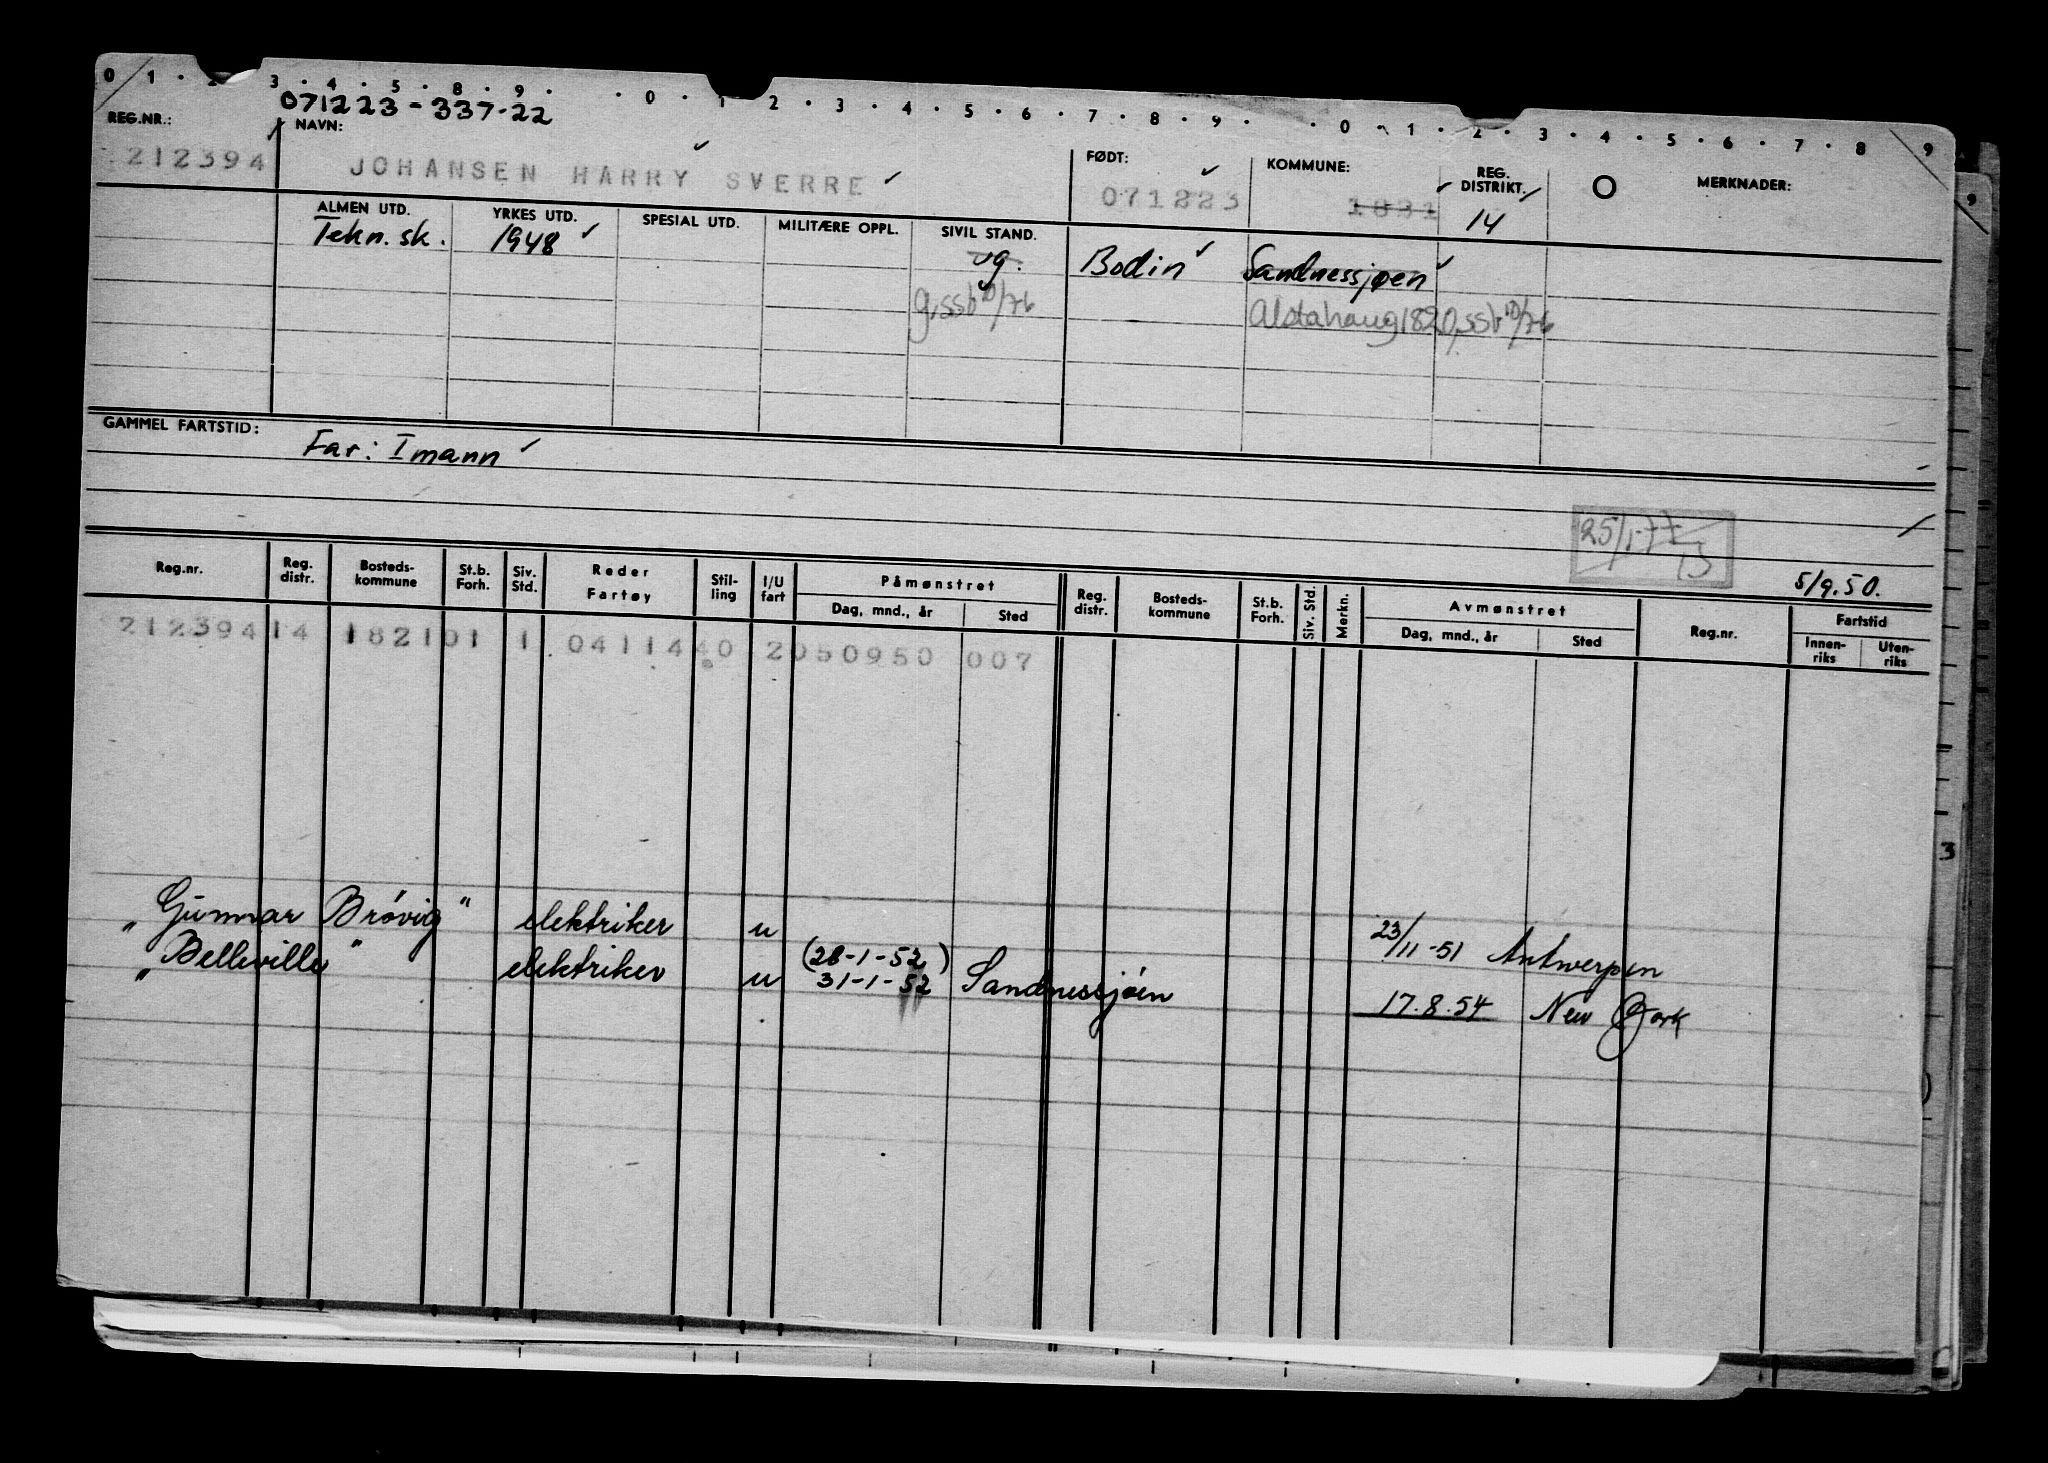 0 1 2 3 4 5 8 9 0 1 2 3 4 5 6 7 8 9 0 1 2 3 4 5 6 7 8 9
071223-337-22
REG.NR.: NAVN: FØDT: KOMMUNE: REG. DISTRIKT. MERKNADER:
212394 JOHANSEN HARRY SVERRE 071223 14
ALMEN UTD. YRKES UTD. SPESIAL UTD. MILITÆRE OPPL. SIVIL STAND.
Tekn. sk. 1948 ug. Bodin Sandnessjøen
g, ssb 10/76 Alstahaug 1820, ssb 10/76
GAMMEL FARTSTID:
Far: Imann
25/1-77
5/9.50.
Reg.nr. Reg. distr. Bosteds-kommune St.b. Forh. Siv. Std. Reder Fartøy Stil-ling I/U fart Påmønstret Reg. distr. Bosteds-kommune St.b. Forh. Siv. Std. Merkn. Avmønstret Reg.nr. Fartstid
Dag, mnd., år Sted Dag, mnd., år Sted Innen-riks Uten-riks
212394 14 1821 01 1 041144 40 2 050950 007
"Gunnar Brøvig" elektriker u 23/11-51 Antwerpen
(28-1-52)
"Belleville" elektriker u 31-1-52 Sandnessjøen 17.8.54 New York
3